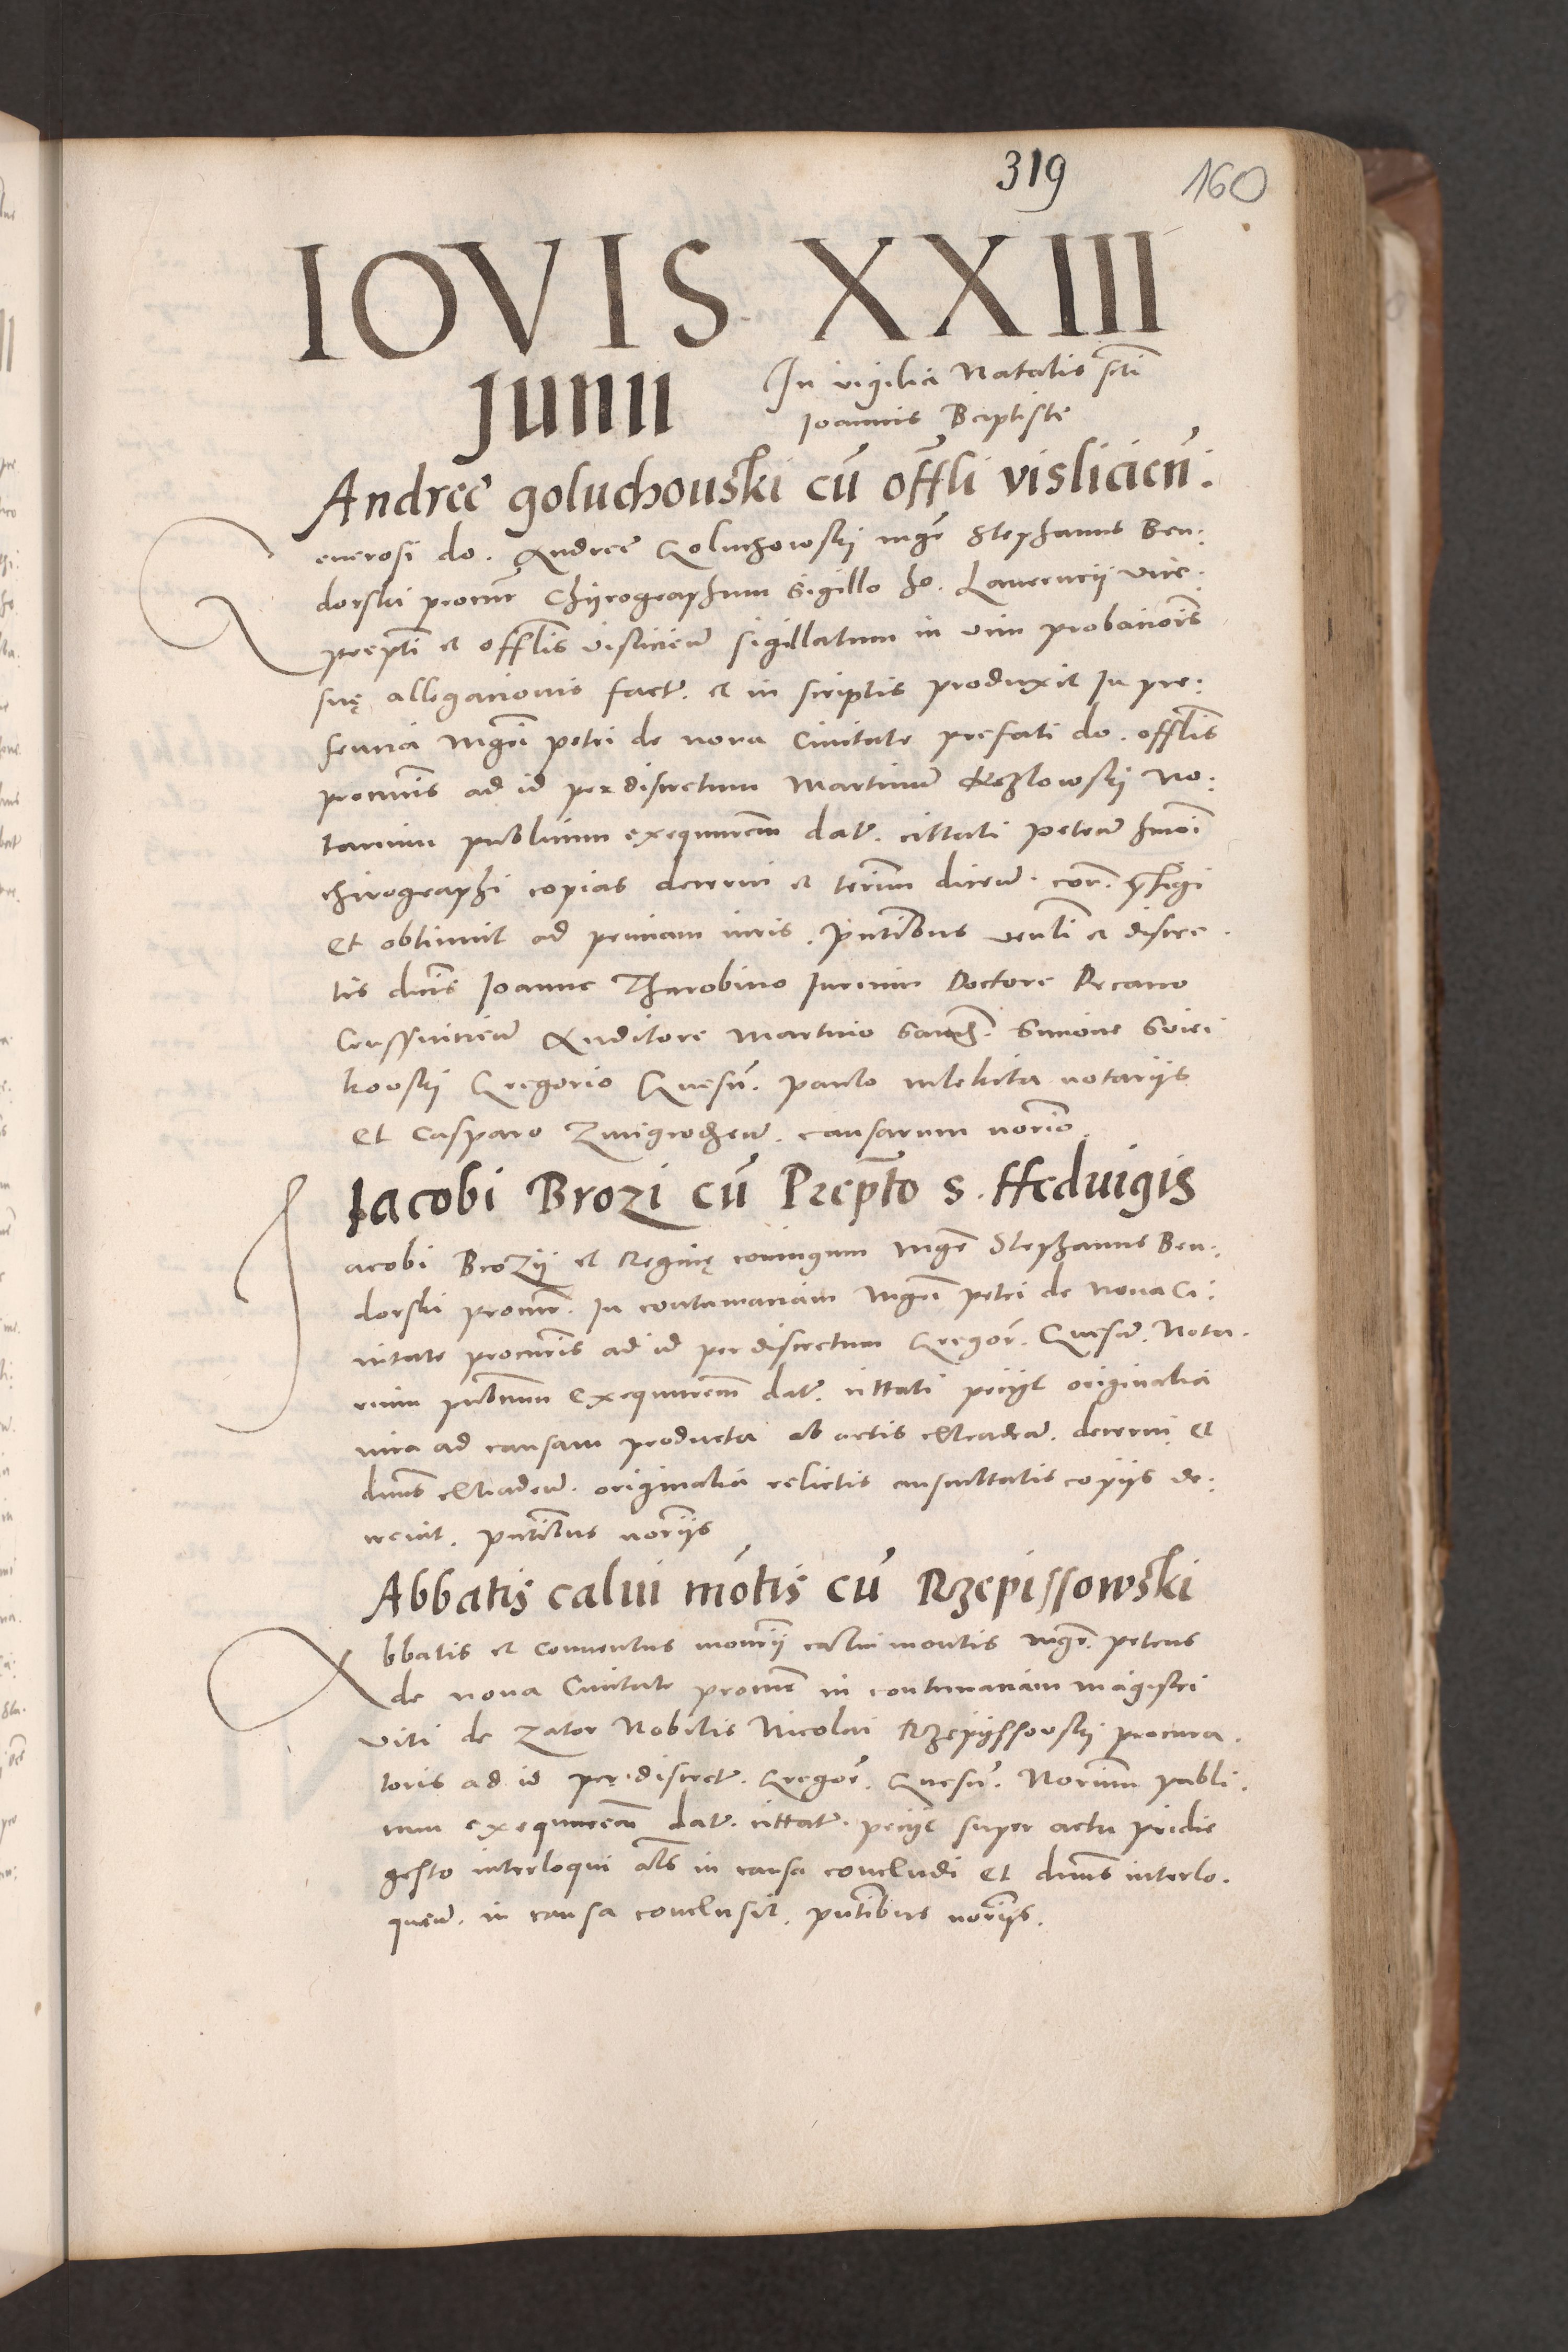 319 160
IOVIS XXIII
Junii In vigilia Natalis scti
Joannis Baptiste
Andree goluchouski cū offli vislicien̄.
Generosi do. Andree Goluchowskij mgr Stephanus Ben:
dorski procur Chyrographum sigillo ho. Laurencij vice:
prepti et offlis vislicien sigillatum in vim probacionis
suę allegacionis fact. et in scriptis produxit In pre:
sencia Mgri petri de nova Civitate prefati do. offlis
procuris ad id per discretum Martinum Kozlowskij No:
tarium publicum exequutem dat. cittati peten hmoi
chirographi copias decerni et terim dicen. con. prefigi
Et obtinuit ad primam iuris. pntibus venli et discre.
tis dnis Joanne Tharobino Jurium Doctore Decano
Auditore Martino Simone
Gregorio Paulo notarijs
Et Casparo causarum norio.
Jacobi Brozi cū Prepto s. Heduigis
Jacobi Brozij et Reginę coniugum Mgr Stephanus Ben:
dorski procur. In contumaciam Mgri petri de Nova Ci:
vitate procuris ad id per discretum Gregor. Nota.
rium publicum Exequutem dat. cittati pecijt originalia
ad causam producta ab actis extraden. decerni Et
dnus extraden. originalia relictis auscultatis copijs de:
crevit. pntibus norijs
Abbatis calui mōtis cū Rzepissowski
Abbatis et Conventus monrij calvi montis mgr. petrus
de nova Civitate procur in contumaciam magistri
Viti de Zator Nobilis Nicolai Rzepyssovskij procura.
toris ad id per discret. Gregor. Norium publi.
cum exequutem dat. cittat. pecijt super actu pridie
gesto interloqui als in causa concludi Et dnus interlo.
quen. in causa conclusit. pntibus norijs.